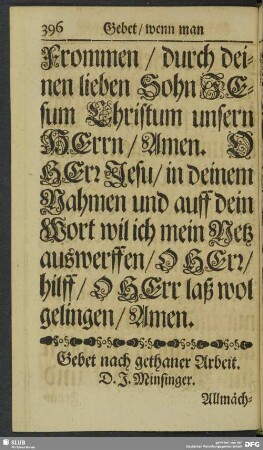 396 Gebet / wenn man
Frommen / durch dei-
nen lieben Sohn JE-
sum Christum unsern
HErrn / Amen. O
HErr Jesu / in deinem
Nahmen und auff dein
Wort wil ich mein Netz
auswerffen / O HErr /
hilff / O HErr laß wol
gelingen / Amen.
Gebet nach gethaner Arbeit.
D. J. Minsinger.
Allmäch-
SLUB